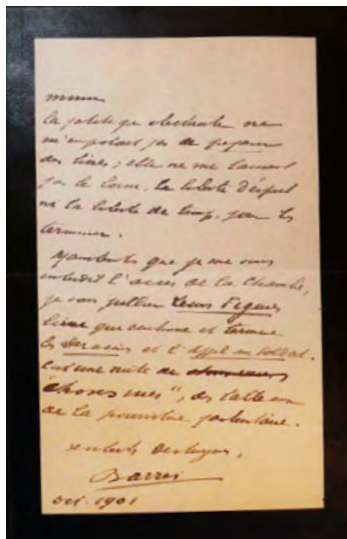 la politique électorale ne
m'empêchait pas de préparer
des livres ; elle ne me laissait
pas le loisir, la liberté d'esprit
ni la liberté de temps, pour les
terminer.
que je me suis
interdit l'accès de la Chambre,
je vais publier Leurs Figures
livre que continue et termine
les Déracinés et l'Appel au Soldat.
C'est une suite de
"choses vues", des tableaux
de la pourriture parlementaire.
Barrès
oct. 1901